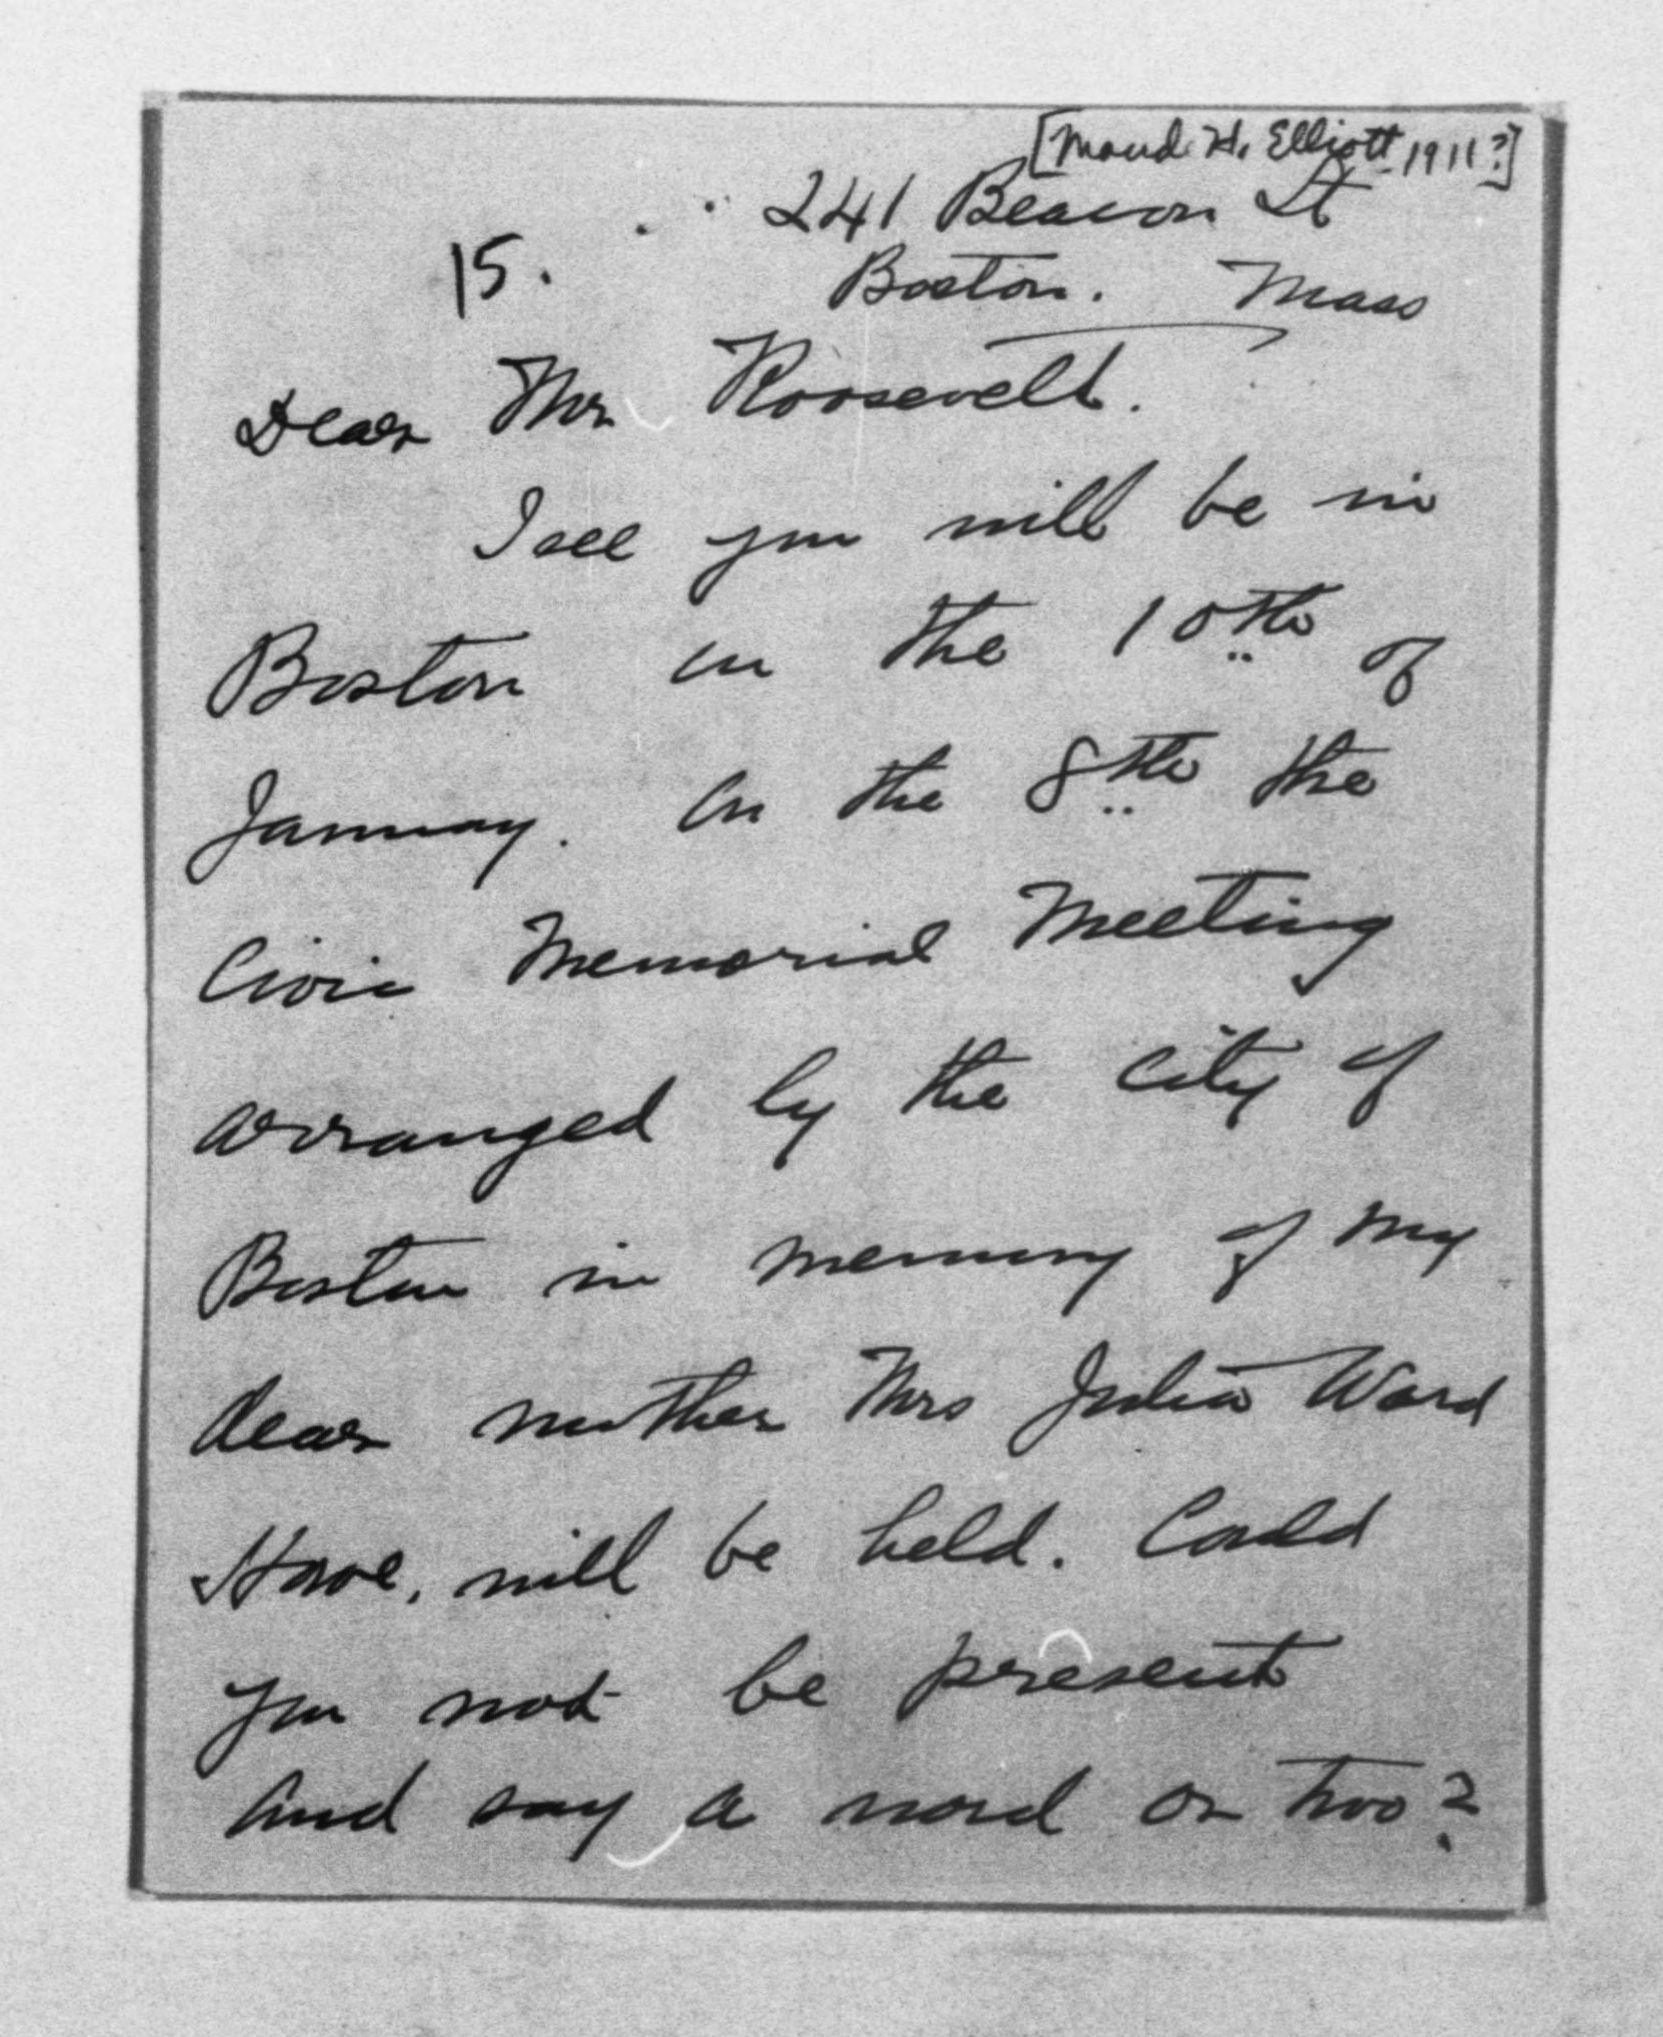 [Maud H. Elliott 1911?]
241 Beacon St
15.
Boston. Mass
Dear Mr Roosevelt.
I see you will be in
Boston on the 10th of
January. On the 8th the
Civic Memorial Meeting
arranged by the city of
Boston in memory of my
dear mother Mrs Julia Ward
Howe, will be held. Could
you not be present
and say a word or two?